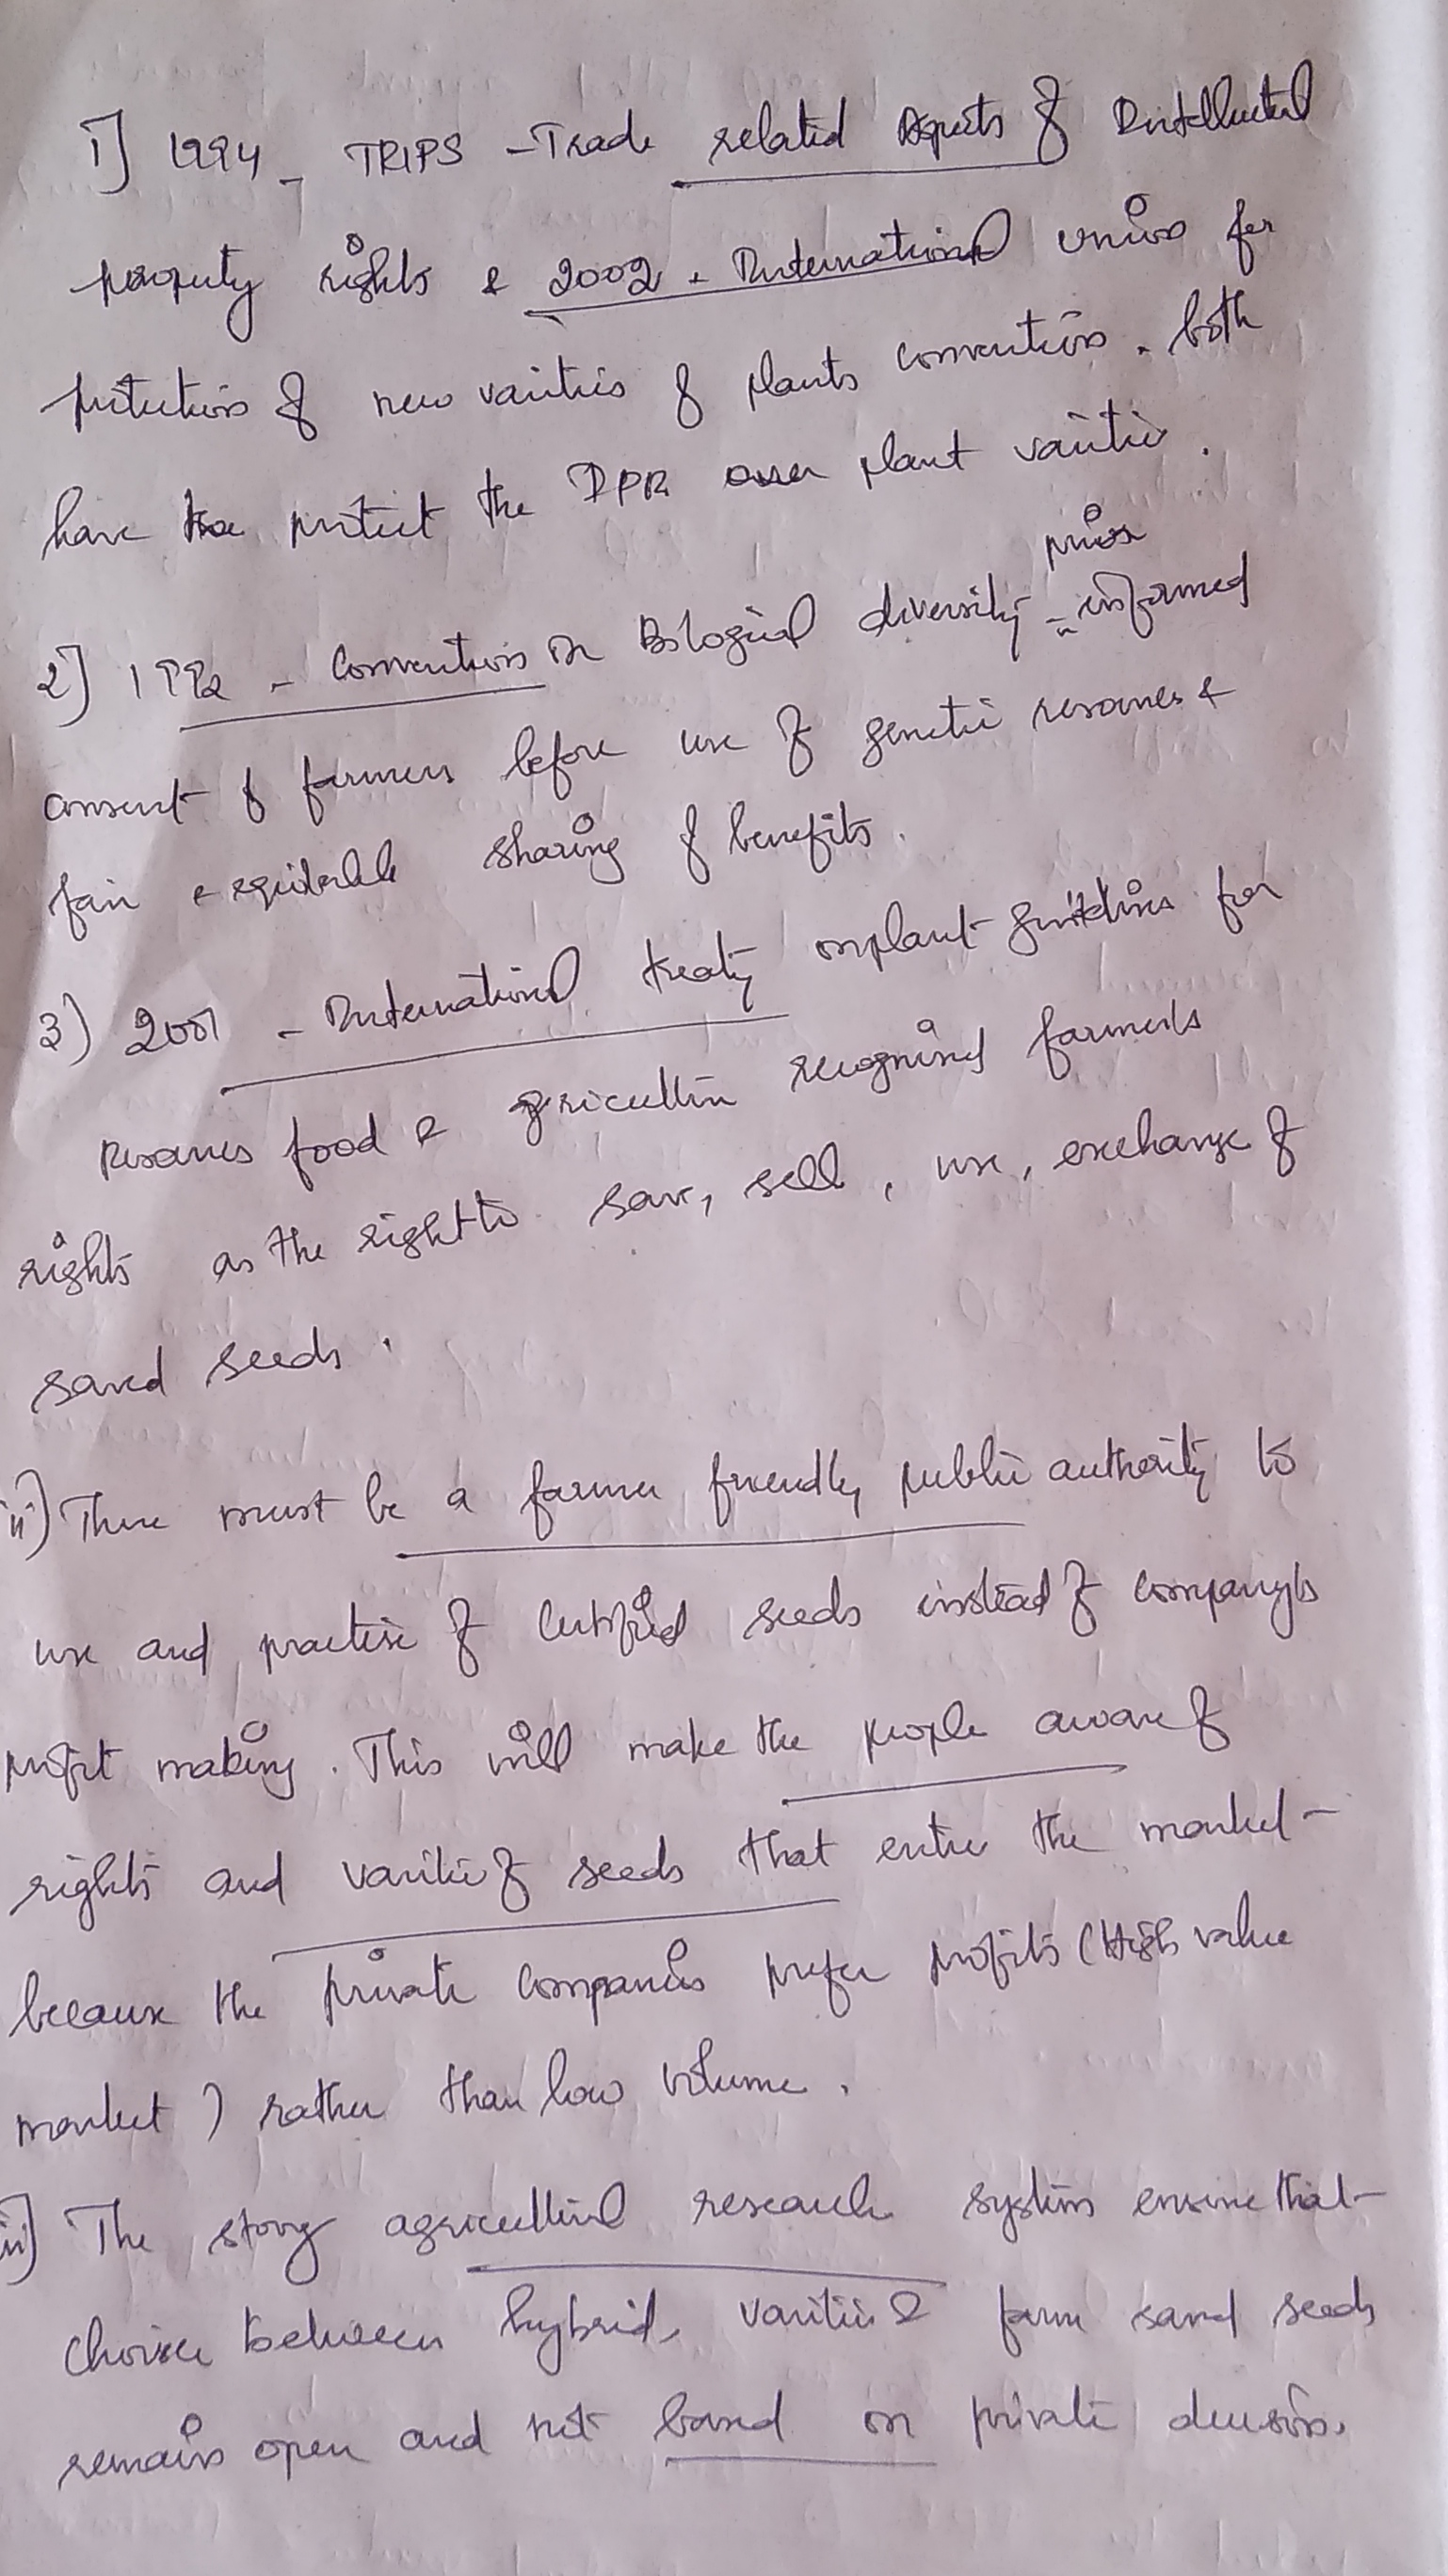 1) 1994 - TRIPS - Trade related Aspects of Intellectual
property rights & 2002 - International Union for
protection of new varities of plants convention. both
have to protect the IPR over plant varitie.
prior
2) 1992 - Convention on Biological diversity - informed
consent of farmers before use of genetic resources &
fair & equitable sharing of benefits.
3) 2001 - International treaty on plant for
Resources food & agriculture recognised farmer's
rights as the right to save, sell, use, exchange of
saved seeds.
ii) There must be a farmer friendly public authority to
use and practise of Certified seeds instead of company's
profit making. This will make the people aware of
rights and varitie of seeds that enter the market
because the private companies prefer profits (High value
market) rather than low volume.
iii) The strong agricultural research system ensure that
choice between hybrid, varities & farm saved seeds
remains open and not based on private decision.